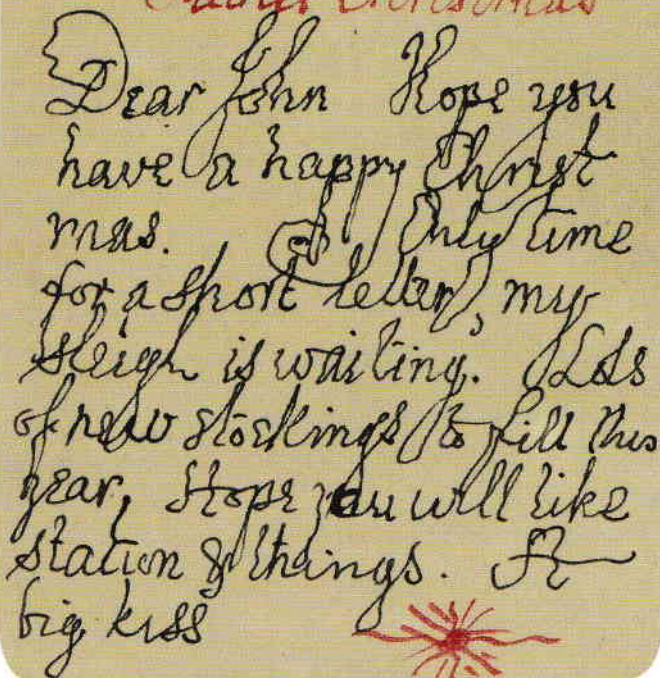 Christmas
Dear John Hope you
have a happy Christ
mas. Only time
for a short letter, my
sleigh is waiting. Lots
of new stockings to fill this
year, Hope you will like
station & things. A
big kiss